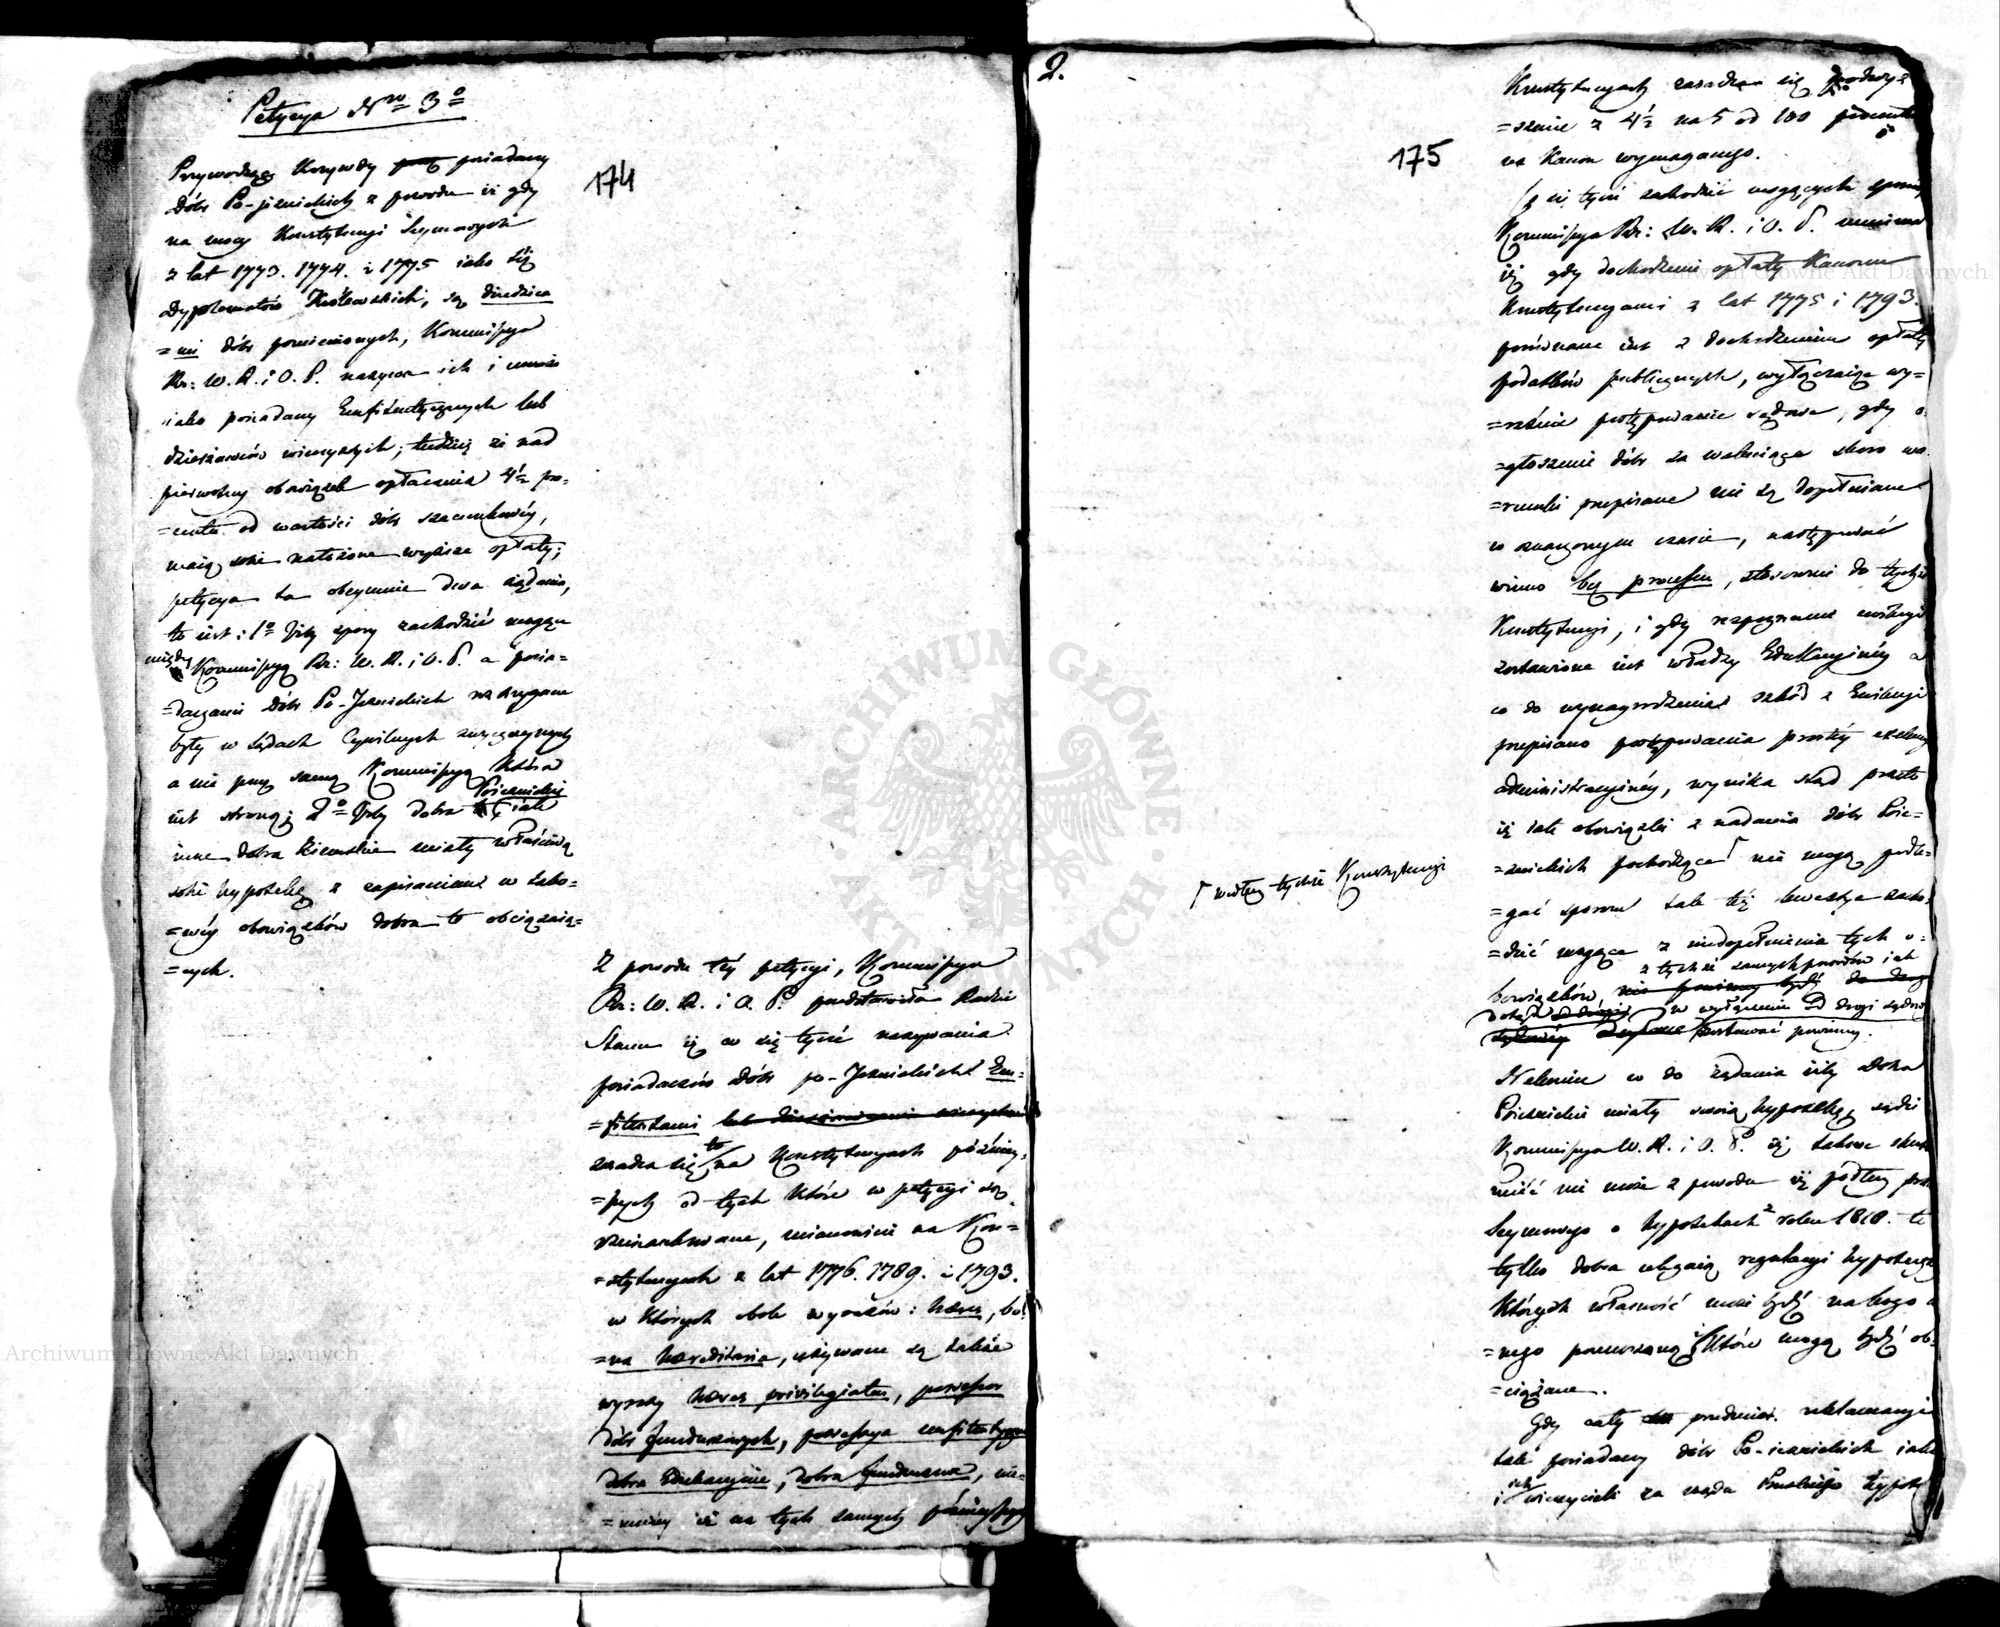 Petycya Nro 3o
174
Przywodzący Krzywdy posiadaczy
Dóbr Po-jezuickich z powodu iż gdy
na mocy Konstytucyi Seymowych
z lat 1773. 1774. i 1775 iako też
Dyplomatów Królewskich, są dziedzica
=mi dóbr pomienionych, Kommissya
Rz: W. R. i O. P. nazywa ich i uważa
iako posiadaczy Emfiteutycznych lub
dzierżawców wieczystych; tudzież że nad
pierwotny obowiązek opłacania 4½ pro=
=centu od wartości dóbr szacunkowéy,
maią sobie nałożone wyższe opłaty;
petycya ta obeymuie dwa żądania,
to iest: 1o Żeby spory zachodzić mogące
między Kommissyą Rz: W. R. i O. P. a posia=
=daczami Dóbr Po-Jezuickich rozstrzygane
były w Sądach Cywilnych zwyczaynych
a nie przez samą Kommissyą która
iest stroną; 2o Żeby dobra Pojezuickie iak
inne dobra Ziemskie miały właściwą
sobie hypotekę z zapisaniem w tako=
=wéy obowiązków dobra te obciążaią=
=cych.
Z powodu téy petycyi, Kommissya
Rz: W. R. i O. P. przedstawiła Radzie
Stanu iż co się tycze nazywania
posiadaczów Dóbr po-Jezuickich Em=
=fiteutami lub dzierżawcami wieczystemi
zasadza się to na Konstytucyach późniey=
=szych od tych które w petycyi są
wzmiankowane, mianowicie na Kon=
=stytucyach z lat 1776. 1789. i 1793.
w których obok wyrazów: hæres, bo=
=na hæreditaria, używane są także
wyrazy hæres privilegiatus, possessor
dóbr funduszowych, possessya emfiteutyczna
dobra Edukacyine, dobra funduszowe, nie=
=mniéy iż na tych samych późnieyszych
2.
175
Konstytucyach zasadza się podwyż=
=szenie z 4½ na 5 od 100 procentu
na Kanon wymaganego.
Co się tycze zachodzić mogących sporów,
Kommissya Rz: W. R. i O. P. mniema
iż gdy dochodzenie opłaty Kanonu
Konstytucyami z lat 1775 i 1793.
porównane iest z dochodzeniem opłaty
podatków publicznych, wyłączaiąc wy=
=raźnie postępowanie sądowe, gdy o=
=głoszenie dóbr za wakuiące skoro wa=
=runki przepisane nie są dopełniane
w oznaczonym czasie, następować
winno bez processu, stosownie do tychże
Konstytucyi, i gdy rozpoznanie
zostawione iest władzy Edukacyinéy a
co do wynagrodzenia szkód z Ewikcyi
przepisano postępowania prostéy exekucyi
administracyinéy, wynika stąd przeto
iż iak obowiązki z nadania dóbr Poie=
=zuickich pochodzące nie mogą podle=
Γ według tychże Konstytucyi
=gać sporom tak też kwestye zacho=
=dzić mogące z niedopełnienia tych o=
bowiązków nie powinny bydź do drogi
z tychże samych powodów iak
dotąd w wyłączeniu od drogi sądowéy
pozostawać powinny.
Nakoniec co do żądania żeby dobra
Pojezuickie miały swoią hypotekę, sądzi
Kommissya W. R. i O. P. iż takowe skutku
mieć nie może z powodu iż podług prawa
Seymowego o hypotekach z roku 1818. te
tylko dobra ulegaią regulacyi hypoteczney
których własność może bydź na kogo in=
=nego przenoszoną i które mogą bydź ob=
=ciążane.
Gdy cały przedmiot reklamacyi
tak posiadaczy dóbr Po-iezuickich iako
i ich wierzycieli za rządu Pruskiego hypote